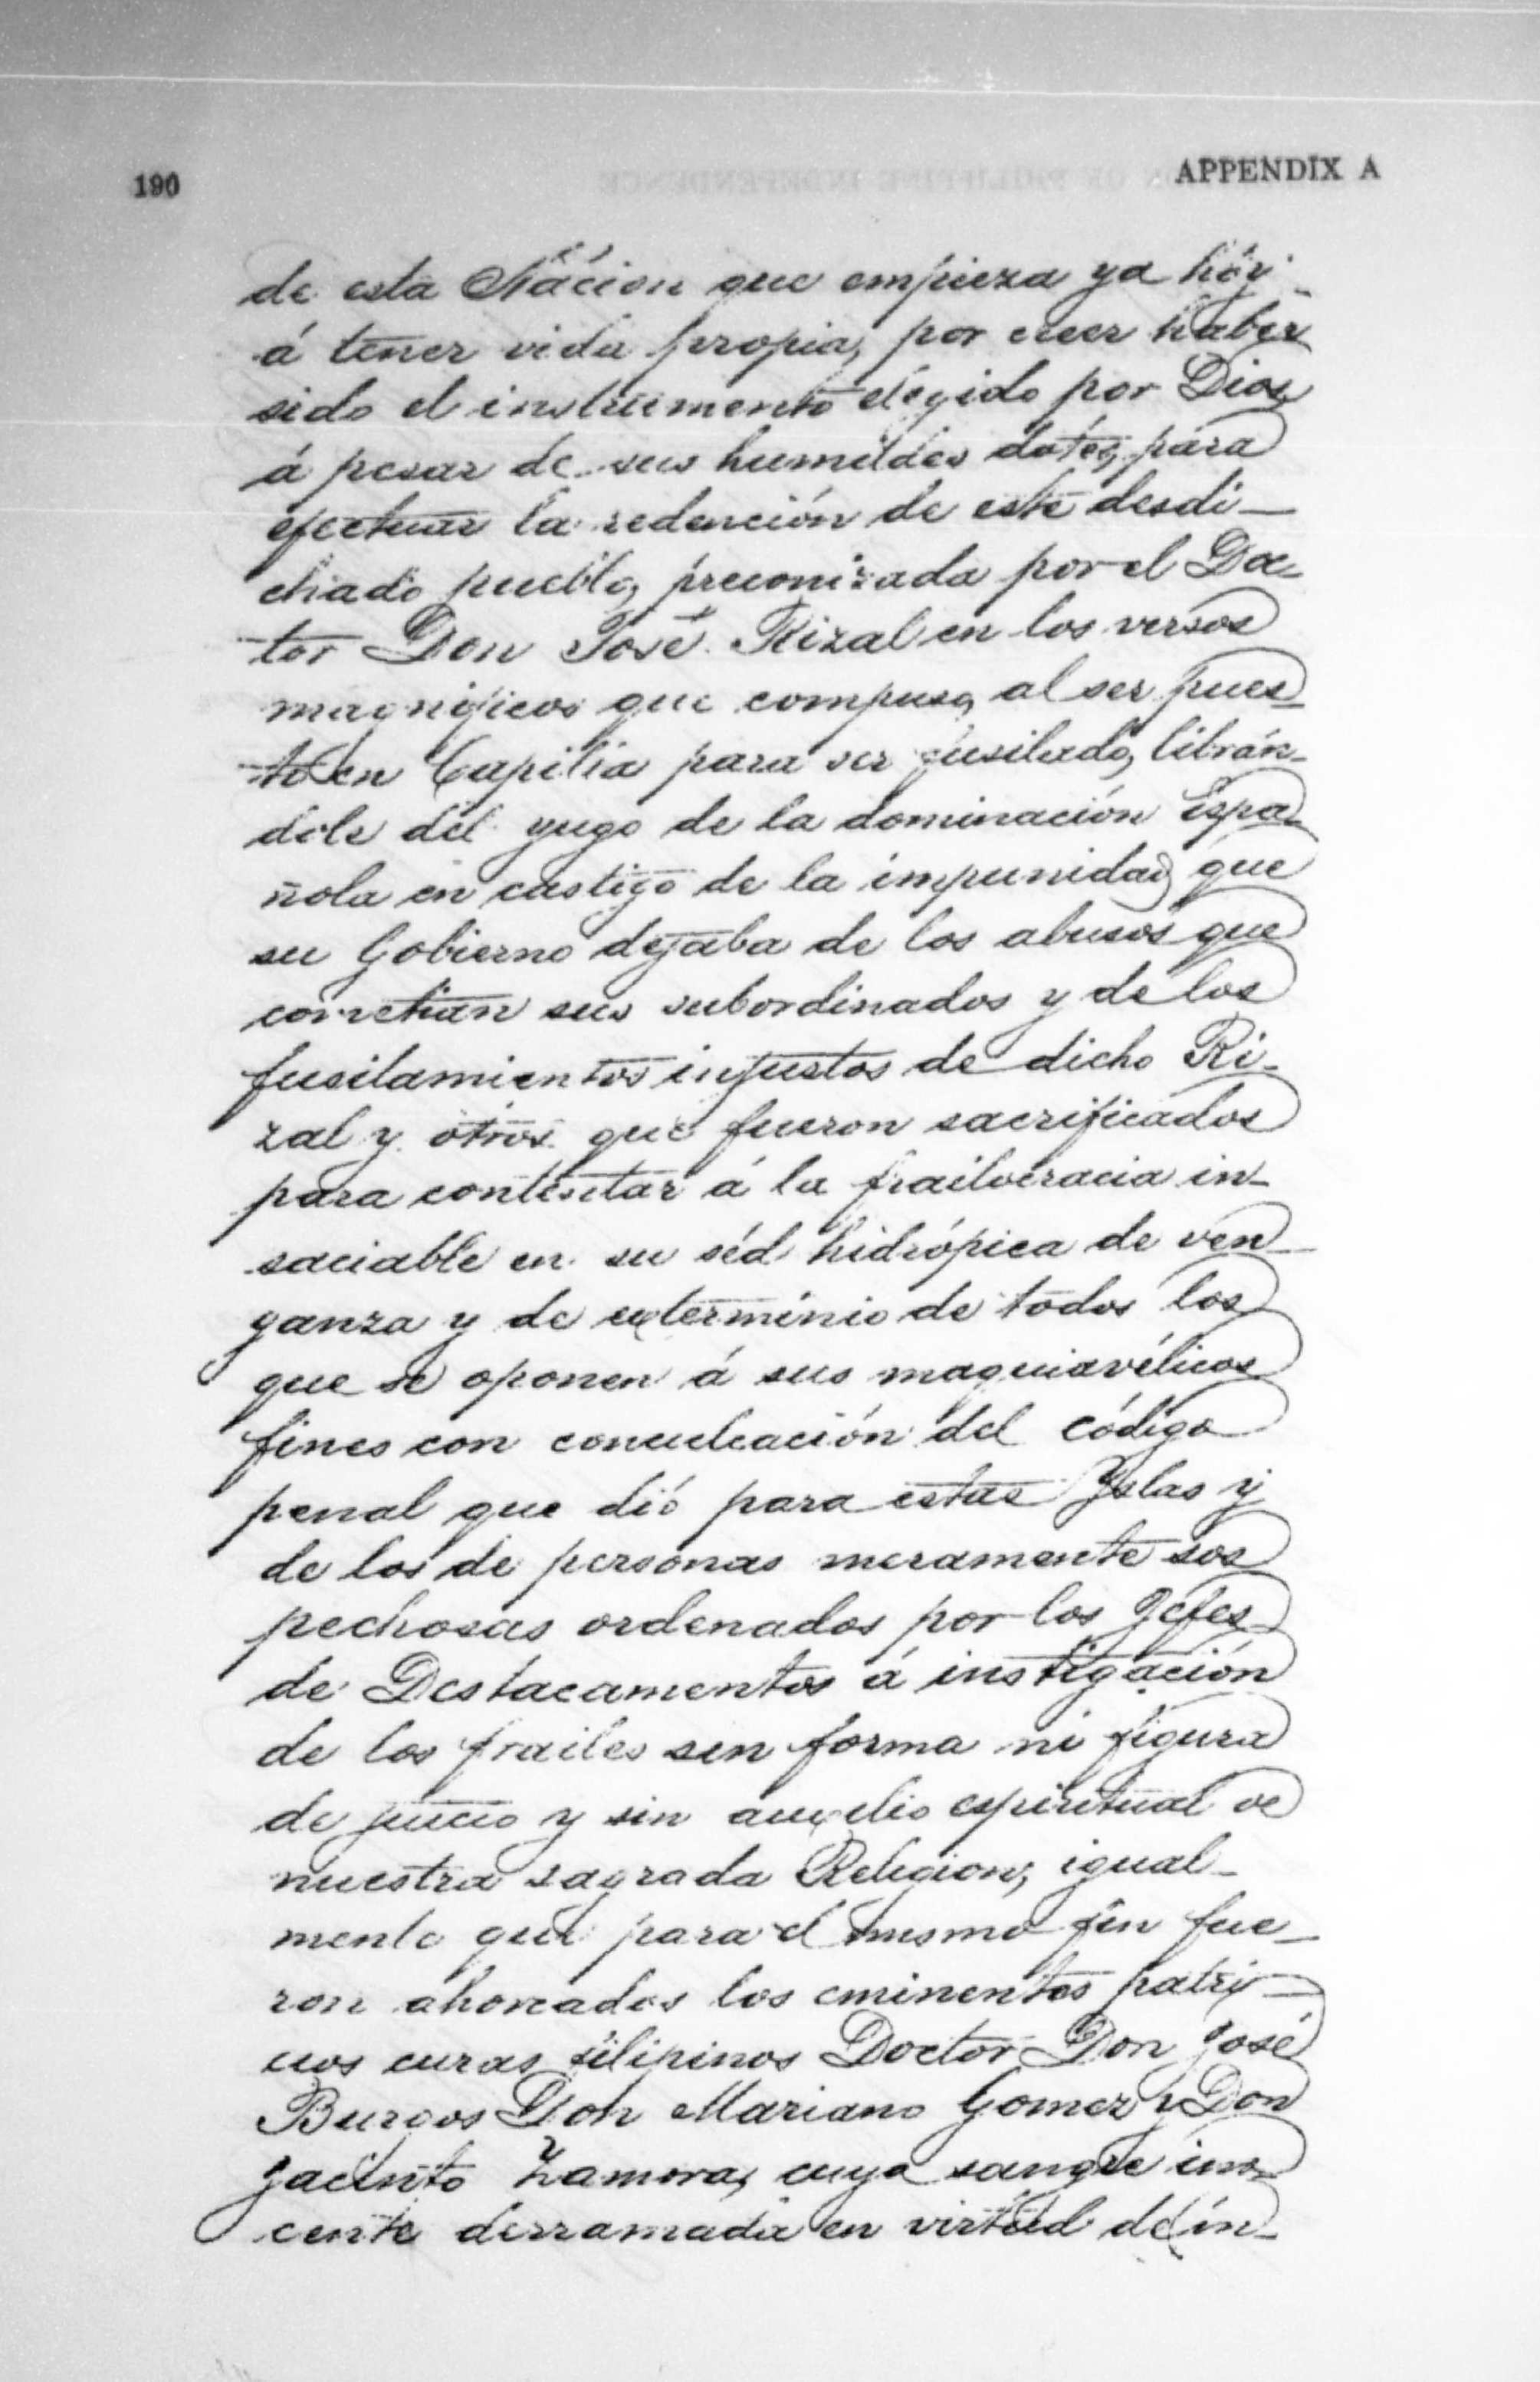 190
APPENDIX A
de esta Nación que empieza ya hoy
á tener vida propia, por creer haber
sido el instrumento elegido por Dios,
á pesar de sus humildes dotes, para
efectuar la redención de este desdi-
chado pueblo, preconizada por el Doc-
tor Don José Rizal en los versos
magnificos que compuso, al ser pues-
to en Capilla para ser fusilado, librán-
dole del yugo de la dominación Espa-
ñola en castigo de la impunidad que
su Gobierno dejaba de los abusos que
cometian sus subordinados y de los
fusilamientos injustos de dicho Ri-
zal y otros que fueron sacrificados
para contentar á la frailocracia in-
saciable en su séd hidrópica de ven-
ganza y de exterminio de todos los
que se oponen á sus maquiavélicos
fines con conculcación del código
penal que dió para estas Yslas y
de los de personas meramente sos
pechosas ordenados por los Jefes
de Destacamentos á instigación
de los frailes sin forma ni figura
de juicio y sin auxilio espiritual de
nuestra sagrada Religion, igual-
mente que para el mismo fin fue-
ron ahorcados los eminentes patri-
cios curas filipinos Doctor Don José
Burgos Don Mariano Gomez y Don
Jacinto Zamora, cuya sangre ino-
cente derramada en virtud de in-